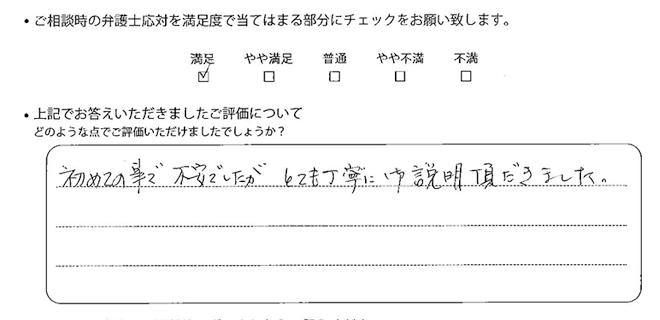 ・ご相談時の弁護士応対を満足度で当てはまる部分にチェックをお願い致します。
満足 やや満足 普通 やや不満 不満
☑ □ □ □ □
・上記でお答えいただきましたご評価について
どのような点でご評価いただけましたでしょうか？
初めての事で 不安でしたが とても丁寧に 説明頂だきました。